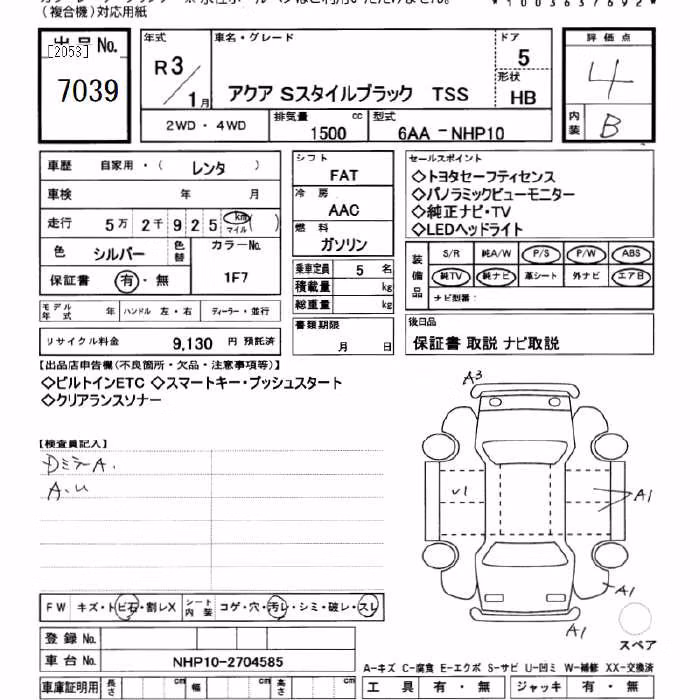 (複合機)対応用紙
*1003637692*
出品No.
[2053]
7039
年式
R3/1月
車名・グレード
アクア Sスタイルブラック TSS
ドア
5
形状
HB
評価点
4
内装
B
2WD・4WD
排気量 cc
1500
型式
6AA－NHP10
車歴 自家用・( レンタ )
車検 年 月
走行 5万2千925 km マイル ( )
色 シルバー 色替 カラーNo. 1F7
保証書 有・無
モデル年式 年 ハンドル 左・右 ディーラー・並行
リサイクル料金 9,130 円 預託済
シフト
FAT
冷房
AAC
燃料
ガソリン
乗車定員 5 名
積載量 kg
総重量 kg
書類期限
月 日
セールスポイント
◇トヨタセーフティセンス
◇パノラミックビューモニター
◇純正ナビ・TV
◇LEDヘッドライト
装備品
S/R 純A/W P/S P/W ABS
純TV 純ナビ 革シート 外ナビ エアB
ナビ型番：
後日品
保証書 取説 ナビ取説
【出品店申告欄(不良箇所・欠品・注意事項等)】
◇ビルトインETC ◇スマートキー・プッシュスタート
◇クリアランスソナー
【検査員記入】
DミラーA.
A.U
A3
U1
A1
A1
A1
スペア
FW キズ・トビ石・割レX シート内装 コゲ・穴・汚レ・シミ・破レ・スレ
登録No.
車台No. NHP10-2704585
車庫証明用 長さ cm 幅 cm 高さ cm
A-キズ C-腐食 E-エクボ S-サビ U-凹ミ W-補修 XX-交換済
工具 有・無 ジャッキ 有・無